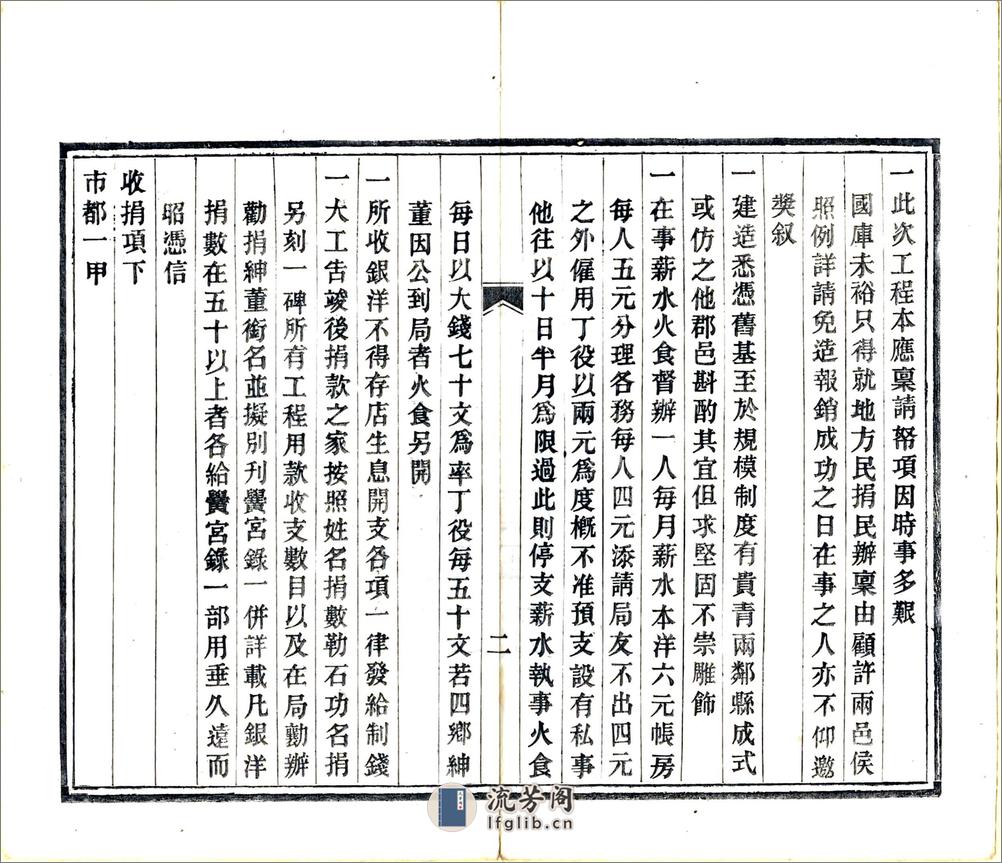 一此次工程本應稟請帑項因時事多艱
國庫未裕只得就地方民捐民辦稟由顧許兩邑侯
照例詳請免造報銷成功之日在事之人亦不仰邀
奬叙
一建造悉憑舊基至於規模制度有貴青兩鄰縣成式
或仿之他郡邑斟酌其宜但求堅固不崇雕飾
一在事薪水火食督辦一人每月薪水本洋六元帳房
每人五元分理各務每人四元添請局友不出四元
之外僱用丁役以兩元爲度槪不准預支設有私事
他往以十日半月爲限過此則停支薪水執事火食
二
每日以大錢七十文爲率丁役每五十文若四鄉紳
董因公到局者火食另開
一所收銀洋不得存店生息開支各項一律發給制錢
一大工告竣後捐款之家按照姓名捐數勒石功名捐
另刻一碑所有工程用款收支數目以及在局勷辦
勸捐紳董銜名並擬別刊黌宮錄一併詳載凡銀洋
捐數在五十以上者各給黌宮錄一部用垂久遠而
昭憑信
收捐項下
市都一甲
流芳阁
lfglib.cn